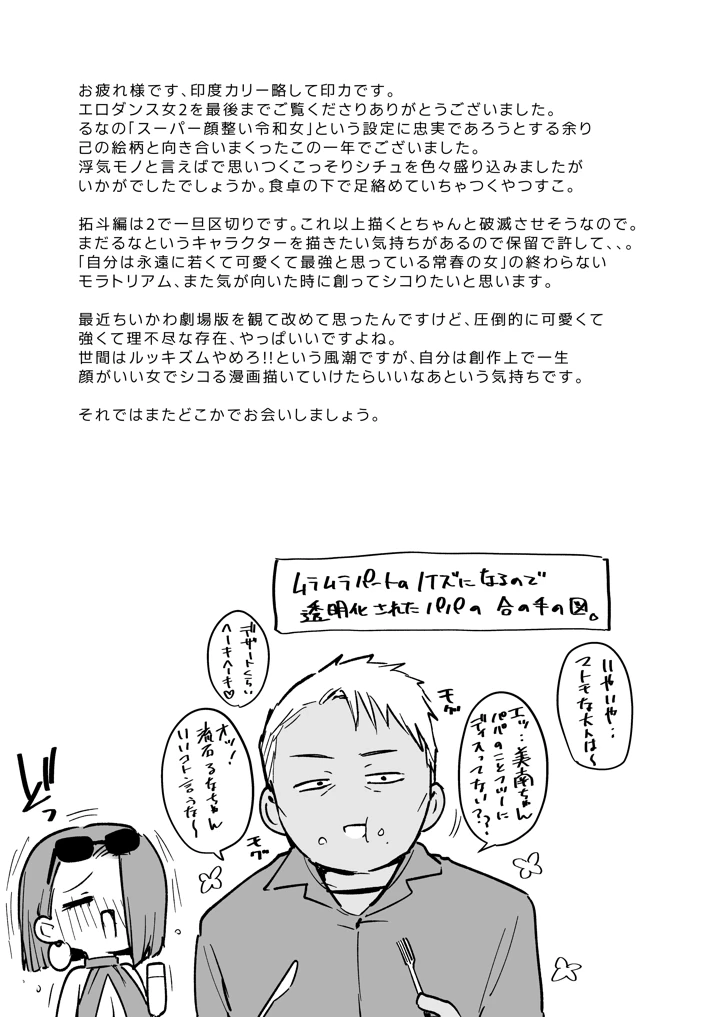 お疲れ様です、印度カリー略して印カです。
エロダンス女2を最後までご覧くださりありがとうございました。
るなの「スーパー顔整い令和女」という設定に忠実であろうとする余り
己の絵柄と向き合いまくったこの一年でございました。
浮気モノと言えばで思いつくこっそりシチュを色々盛り込みましたが
いかがでしたでしょうか。食卓の下で足絡めていちゃつくやつすこ。
拓斗編は2で一旦区切りです。これ以上描くとちゃんと破滅させそうなので。
まだるなというキャラクターを描きたい気持ちがあるので保留で許して、、。
「自分は永遠に若くて可愛くて最強と思っている常春の女」の終わらない
モラトリアム、また気が向いた時に創ってシコりたいと思います。
最近ちいかわ劇場版を観て改めて思ったんですけど、圧倒的に可愛くて
強くて理不尽な存在、やっぱいいですよね。
世間はルッキズムやめろ!!という風潮ですが、自分は創作上で一生
顔がいい女でシコる漫画描いていけたらいいなあという気持ちです。
それではまたどこかでお会いしましょう。
ムラムラパートのノイズになるので
透明化されたパパの合の手の図。
いやいや…
マトモな大人は〜
エッ…美南ちゃん
パパのことフツーに
ディスってない??
モグ
デザートくらい
ヘーキヘーキ♡
オッ!
流石るなちゃん
いいコト言うな〜
モグ